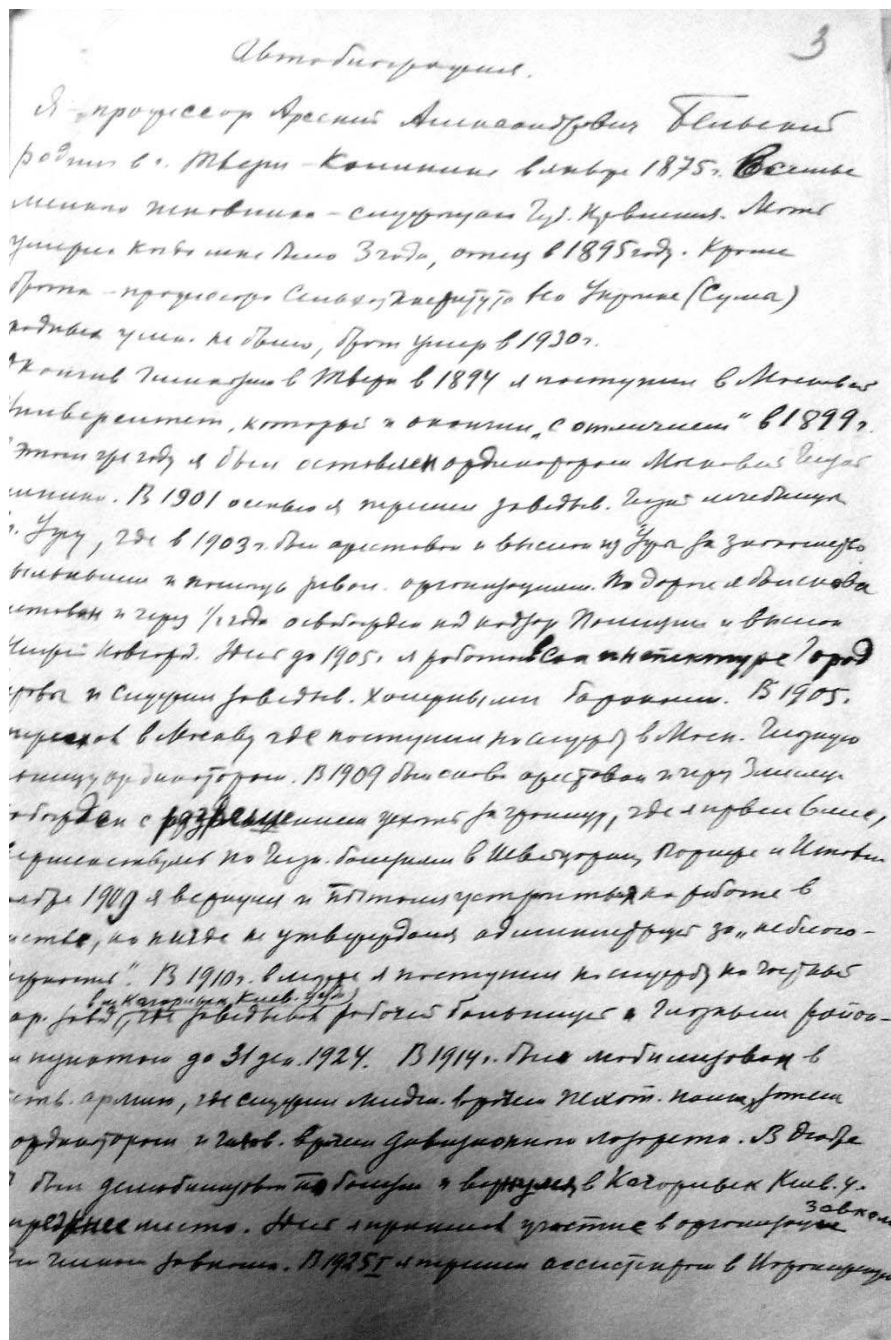 3
Автобиография.
Я профессор Арсений Александрович Бельский
родился в г. Твери - Калинине в январе 1875 г. В семье
мелкого чиновника - служащего Губ. правления. Мать
умерла когда мне было 3 года, отец в 1895 году. Кроме
брата - профессора Сельхозинститута на Украине (Сумы)
родных у меня не было, брат умер в 1930 г.
Окончив гимназию в Твери в 1894 я поступил в Московский
Университет, который и окончил „с отличием" в 1899 г.
этом же году я был оставлен ординатором Московской Глазной
клиники. В 1901 осенью я перешел заведыв. Глазной лечебницы
г. Уфу, где в 1903 г. был арестован и выслан из Уфы за знакомство
ссыльными и помощь револ. организациям. По дороге я был снова
арестован и через 1/2 года освобожден под надзор Полиции и выслан
Нижний Новгород. Здесь до 1905 г. я работал в Сан инспектуре Город
управы и служил заведыв. холерными бараками. В 1905 г.
переехал в Москву где поступил на службу в Моск. Глазную
больницу ординатором. В 1909 был снова арестован и через 3 месяца
освобожден с разрешением уехать за границу, где я провел 6 мес,
совершенствуясь по Глазн. болезням в Швейцарии, Париже и Италии
1909 я вернулся и пытался устроиться на работе в
земстве, но нигде не утверждался администрацией за „неблаго-
надежность". В 1910 г. в марте я поступил на службу на частный
сахар. завод (в м. Кагарлык Киев. губ.) где заведывал рабочей больницей и Глазным район-
пунктом до 31 дек. 1924. В 1914 г. был мобилизован в
армию, где служил младш. врачем пехот. полка, затем
ординатором и глав. врачем дивизионного лазарета. В декабре
был демобилизован по болезни и вернулся в Кагарлык Киев. г.
прежнее место. Здесь я принимал участие в организации завкома
членом завкома. В 1925 I я перешел ассистентом в